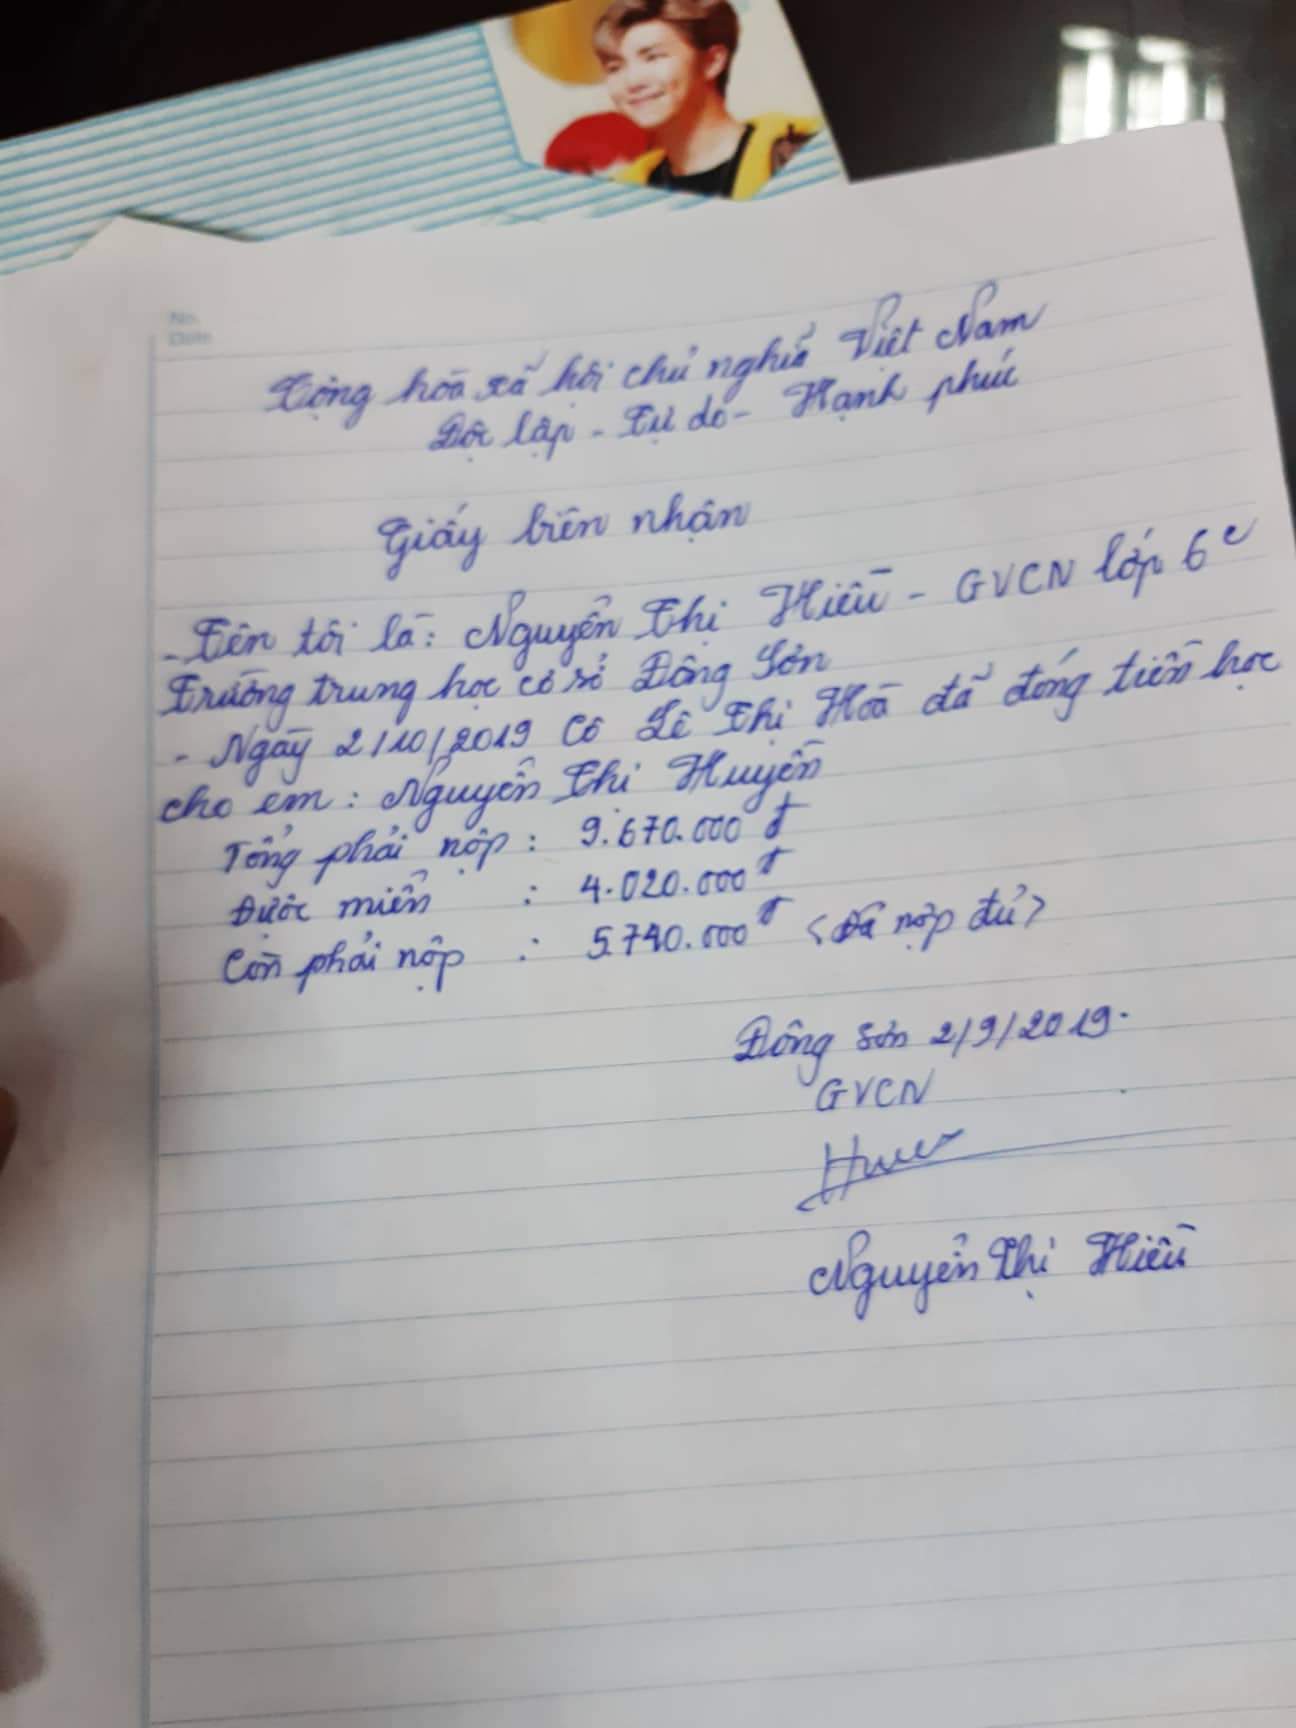 No.
Date
Cộng hòa xã hội chủ nghĩa Việt Nam
Độc lập - Tự do - Hạnh phúc
Giấy biên nhận
- Tên tôi là: Nguyễn Thị Hiền - GVCN lớp 6c
Trường trung học cơ sở Đông Sơn
- Ngày 2/10/2019 Cô Lê Thị Hoà đã đóng tiền học
cho em: Nguyễn Thị Huyền
Tổng phải nộp : 9.670.000 đ
Được miễn : 4.020.000 đ
Còn phải nộp : 5.740.000 đ (Đã nộp đủ)
Đông Sơn 2/9/2019.
GVCN
Nguyễn Thị Hiền